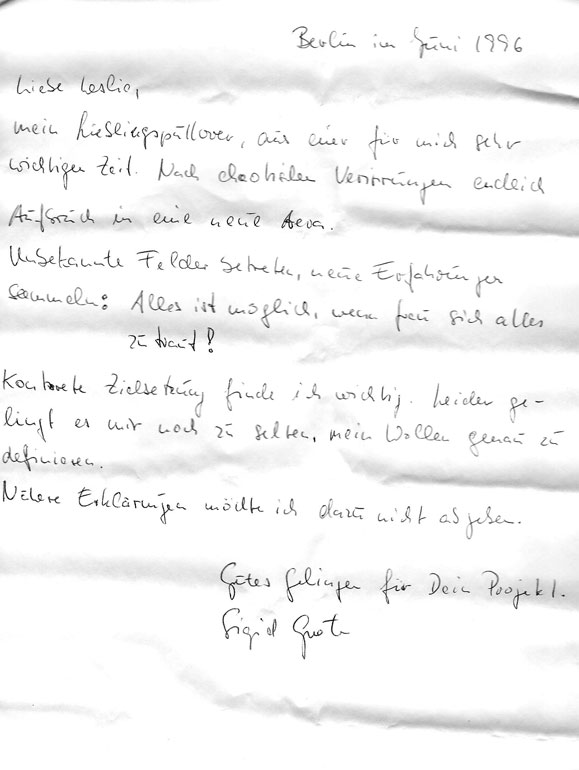 Berlin im Juni 1996
Liebe Leslie,
mein Lieblingspullover, aus einer für mich sehr
wichtigen Zeit. Nach chaotischen Verirrungen endlich
Aufbruch in eine neue Aera.
Unbekannte Felder betreten, neue Erfahrungen
sammeln: Alles ist möglich, wenn frau sich alles
zu traut!
Konkrete Zielsetzung finde ich wichtig. Leider ge-
lingt es mir noch zu selten, mein Wollen genau zu
definieren.
Nähere Erklärungen möchte ich dazu nicht abgeben.
Gutes Gelingen für Dein Projekt.
Sigrid